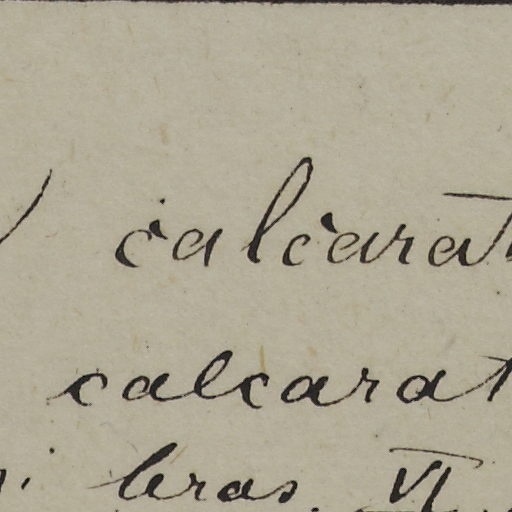 calcarat
calcarat
bras. VI